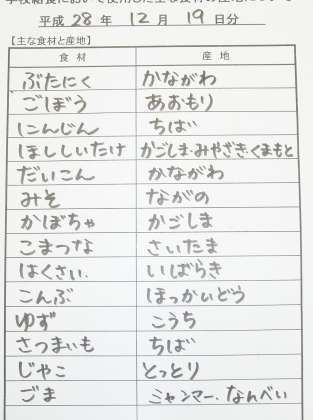 学校給食において使用した主な食材の産地について
平成 28 年 12 月 19 日分
【主な食材と産地】
食 材 産 地
ぶたにく かながわ
ごぼう あおもり
にんじん ちば
ほししいたけ かごしま・みやざき・くまもと
だいこん かながわ
みそ ながの
かぼちゃ かごしま
こまつな さいたま
はくさい. いばらき
こんぶ ほっかいどう
ゆず こうち
さつまいも ちば
じゃこ とっとり
ごま ミャンマー. なんべい